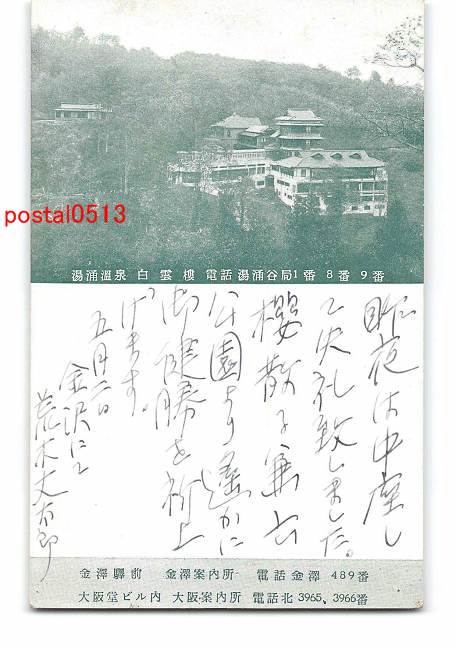 postal0513
湯涌溫泉 白雲樓 電話 湯涌谷局1番 8番 9番
昨夜は中座し
て失礼致しました。
櫻散る兼六
公園より遙かに
御健勝を祈上
げます。
五月二日
金沢にて
荒木丈太郎
金澤驛前 金澤案內所 電話金澤 489番
大阪堂ビル內 大阪案內所 電話北 3965、3966番